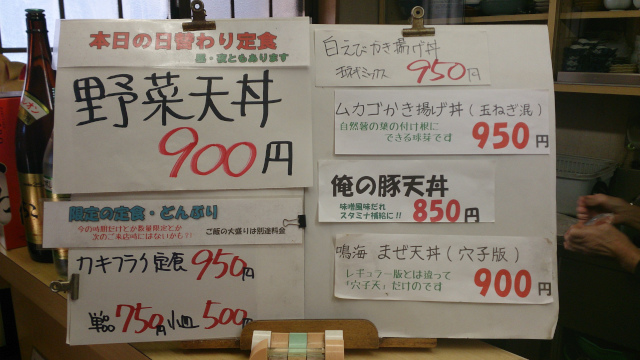 本日の日替わり定食
昼・夜ともあります
野菜天丼
900円
限定の定食・どんぶり
今の時間だけとか数量限定とか
次のご来店時にはないかも!!
ご飯の大盛りは別途料金
カキフライ定食 950円
単品750円 小皿500円
白えびかき揚げ丼
玉ネギミックス 950円
ムカゴかき揚げ丼(玉ねぎ混)
自然薯の葉の付け根に
できる球芽です
950円
俺の豚天丼
味噌風味だれ
スタミナ補給に!!
850円
鳴海 まぜ天丼(穴子版)
レギュラー版とは違って
「穴子天」だけのです
900円